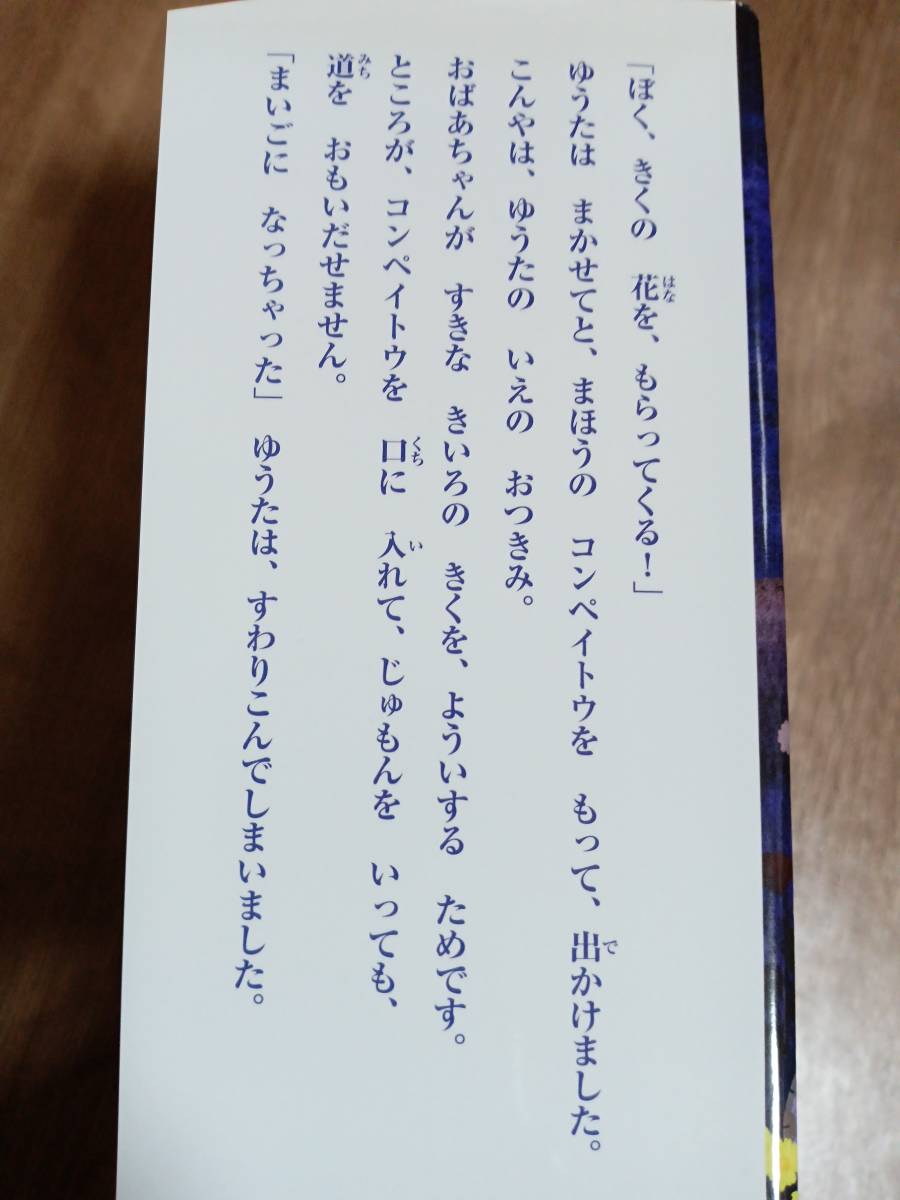 「ぼく、きくの　花を、もらってくる！」
ゆうたは　まかせてと、まほうの　コンペイトウを　もって、出かけました。
こんやは、ゆうたの　いえの　おつきみ。
おばあちゃんが　すきな　きいろの　きくを、よういする　ためです。
ところが、コンペイトウを　口に　入れて、じゅもんを　いっても、
道を　おもいだせません。
「まいごに　なっちゃった」　ゆうたは、すわりこんでしまいました。